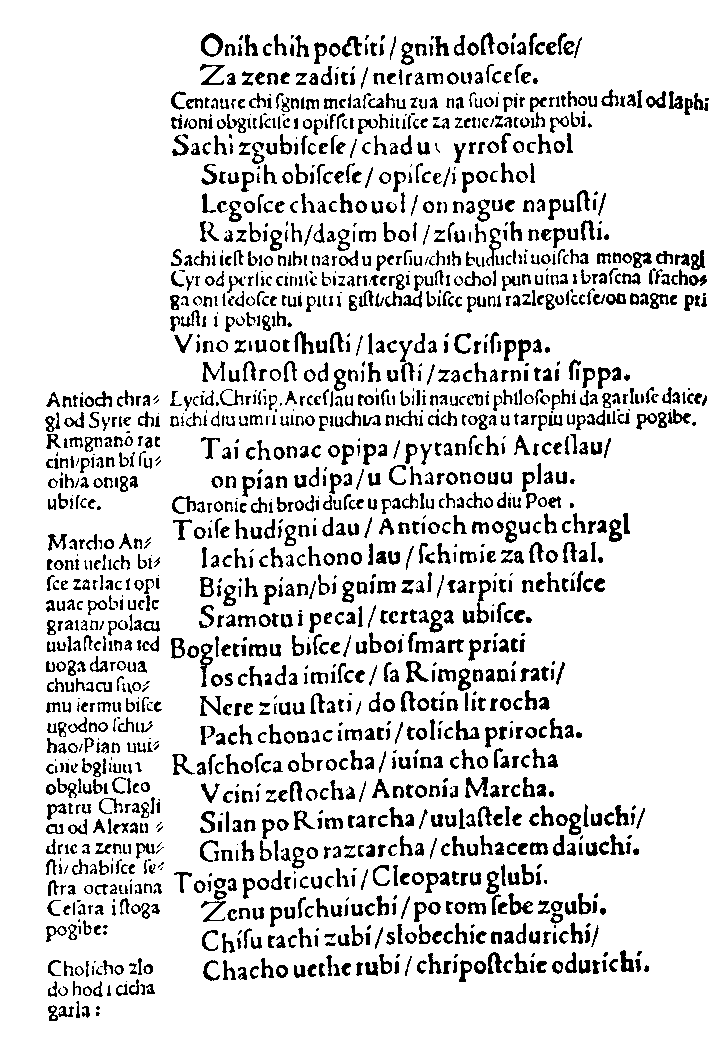 Onih chih poctiti / gnih doſtoiaſceſe/
Za zene zaditi / neſramouaſceſe.
Centaure chi ſgnim meiaſcahu zua na ſuoi pir perithou chral od laphi
ti/oni obgitiſciſe i opiſſci pohitiſce za zene/zatoih pobi.
Sachi zgubiſceſe / chad u yrrof ochol
Stupih obiſceſe / opiſce/i pochol
Legoſce chacho uol / on nague napuſti/
Razbigih/dagim bol / zſuihgih nepuſti.
Sachi ieſt bio nihi narod u perſiu/chih buduchi uoiſcha mnoga chragl
Cyr od perſie ciniſe bizati/tergi puſti ochol pun uina i braſena ſſacho⸗
ga oni ſedoſce tui piti i giſti/chad biſce puni razlegoſceſe/on nagne pri
puſti i pobigih.
Vino ziuot ſhuſti / lacyda i Criſippa.
Muſtroſt od gnih uſti / zacharni tai ſippa.
Lycid.Chriſip.Arceſlau toiſu bili nauceni philoſophi da garluſe daice/
nichi diu umri uino piuchi/a nichi cich toga u tarpiu upadiſci pogibe.
Tai chonac opipa / pytanſchi Arceſlau/
on pian udipa/u Charonouu plau.
Charonie chi brodi duſce u pachlu chacho diu Poet .
Toiſe hudigni dau / Antioch moguch chragl
Iachi chachono lau / ſchimie za ſto ſtal.
Bigih pian/bi gnim zal / tarpiti nehtiſce
Sramotu i pecal / tertaga ubiſce.
Bogletimu biſce / uboi ſmart priati
Ios chada imiſce / ſa Rimgnani rati/
Nere ziuu ſtati / do ſtotin lit rocha
Pach chonac imati / tolicha prirocha.
Raſchoſca obrocha / iuina cho ſarcha
Vcini zeſtocha / Antonia Marcha.
Silan po Rim tarcha / uulaſtele chogluchi/
Gnih blago raztarcha / chuhacem daiuchi.
Toiga podticuchi / Cleopatru glubi.
Zenu puſchuiuchi / po tom ſebe zgubi.
Chiſu tachi zubi / slobechie nadurichi/
Chacho uethe rubi / chripoſtchie odurichi.
Antioch chra⸗
gl od Syrie chi
Rimgnanō rat
cini/pian bi ſu⸗
oih/a oniga
ubiſce.
Marcho An⸗
toni uelich bi⸗
ſce zarlac i opi
auac pobi uele
graian/polacu
uulaſtelina ied
uoga daroua
chuhacu ſuo⸗
mu iermu biſce
ugodno ſchu⸗
hao/Pian uui⸗
cine bgliuu i
obglubi Cleo
patru Chragli
cu od Alexan ⸗
drie a zenu pu⸗
ſti/chabiſce ſe⸗
ſtra octauiana
Ceſara i ſtoga
pogibe:
Cholicho zlo
do hod i cicha
garla :